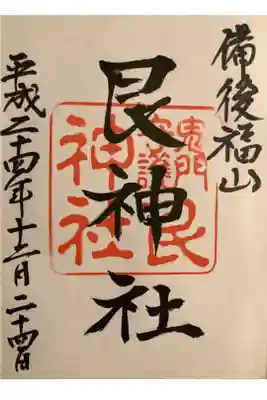 備後福山
艮神社
鬼門
守護
艮
神社
平成二十四年十二月二十四日